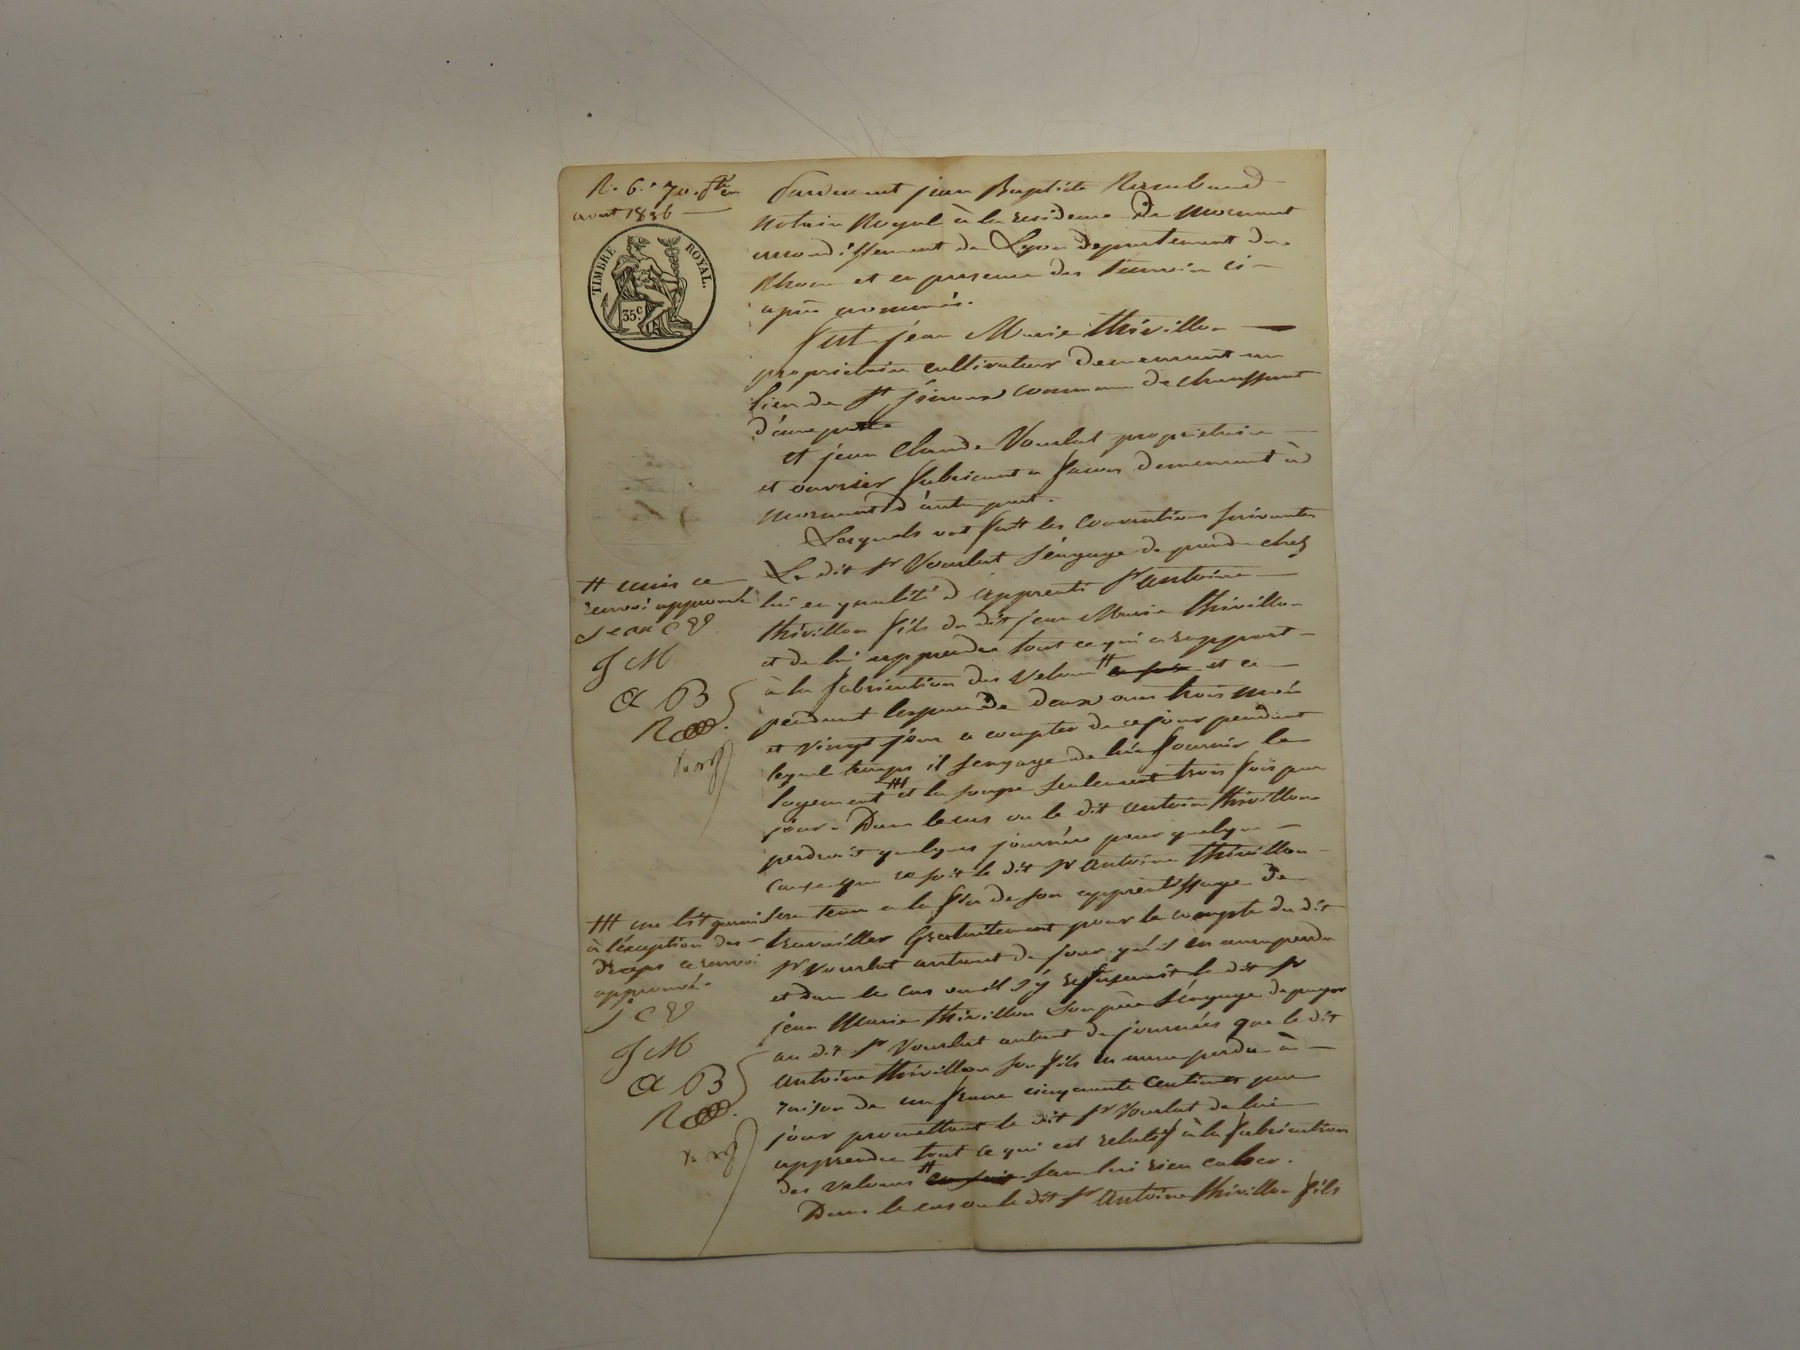 avril 1836
TIMBRE ROYAL.
35c.
Pardevant jean Baptiste Rambaud
Notaire Royal à la residence de Mornant
arrondissement de Lyon departement du
Rhone et en presence des temoins ci-
après nommés.
fut jean Marie thivillon
proprietaire cultivateur demeurant au
lieu de St commune de chaussant
d'une part
et jean Claude Vourlat proprietaire
et ouvrier fabricant a facon demeurant à
Mornant d'autre part.
Lesquels ont fait les conventions suivantes
Le dit Sr Vourlat s'engage de prendre chez
lui en qualité d'apprenti Sr antoine
thivillon fils du dit jean Marie thivillon
et de lui apprendre tout ce qui a rapport
à la fabrication des velours # et ce
pendant l'espace de deux ans trois mois
et vingt jour a compter de ce jour pendant
lequel temps il s'engage de lui fournir le
logement ### et la soupe seulement trois fois par
jour. Dans le cas ou le dit antoine thivillon
perdrait quelques journées pour quelque
cause que ce soit le dit Sr antoine thivillon
sera tenu a la fin de son apprentissage de
travailler gratuitement pour le compte du dit
Sr Vourlat autant de jour qu'il en aura perdu
et dans le cas ou il s'y refuserait le dit Sr
jean Marie thivillon son père s'engage de payer
au dit Sr Vourlat autant de journées que le dit
antoine thivillon son fils en aura perdu à
raison de un franc cinquante centimes par
jour promettant le dit Sr Vourlat de lui
apprendre tout ce qui est relatif à la fabrication
des velours # sans lui rien cacher.
Dans le cas ou le dit Sr antoine thivillon fils
# unis ce
renvoi approuvé
Jean C V
J M
A B
R
### un lit garni
à l'exception des
draps ce renvoi
approuvé.
J C V
J M
A B
R